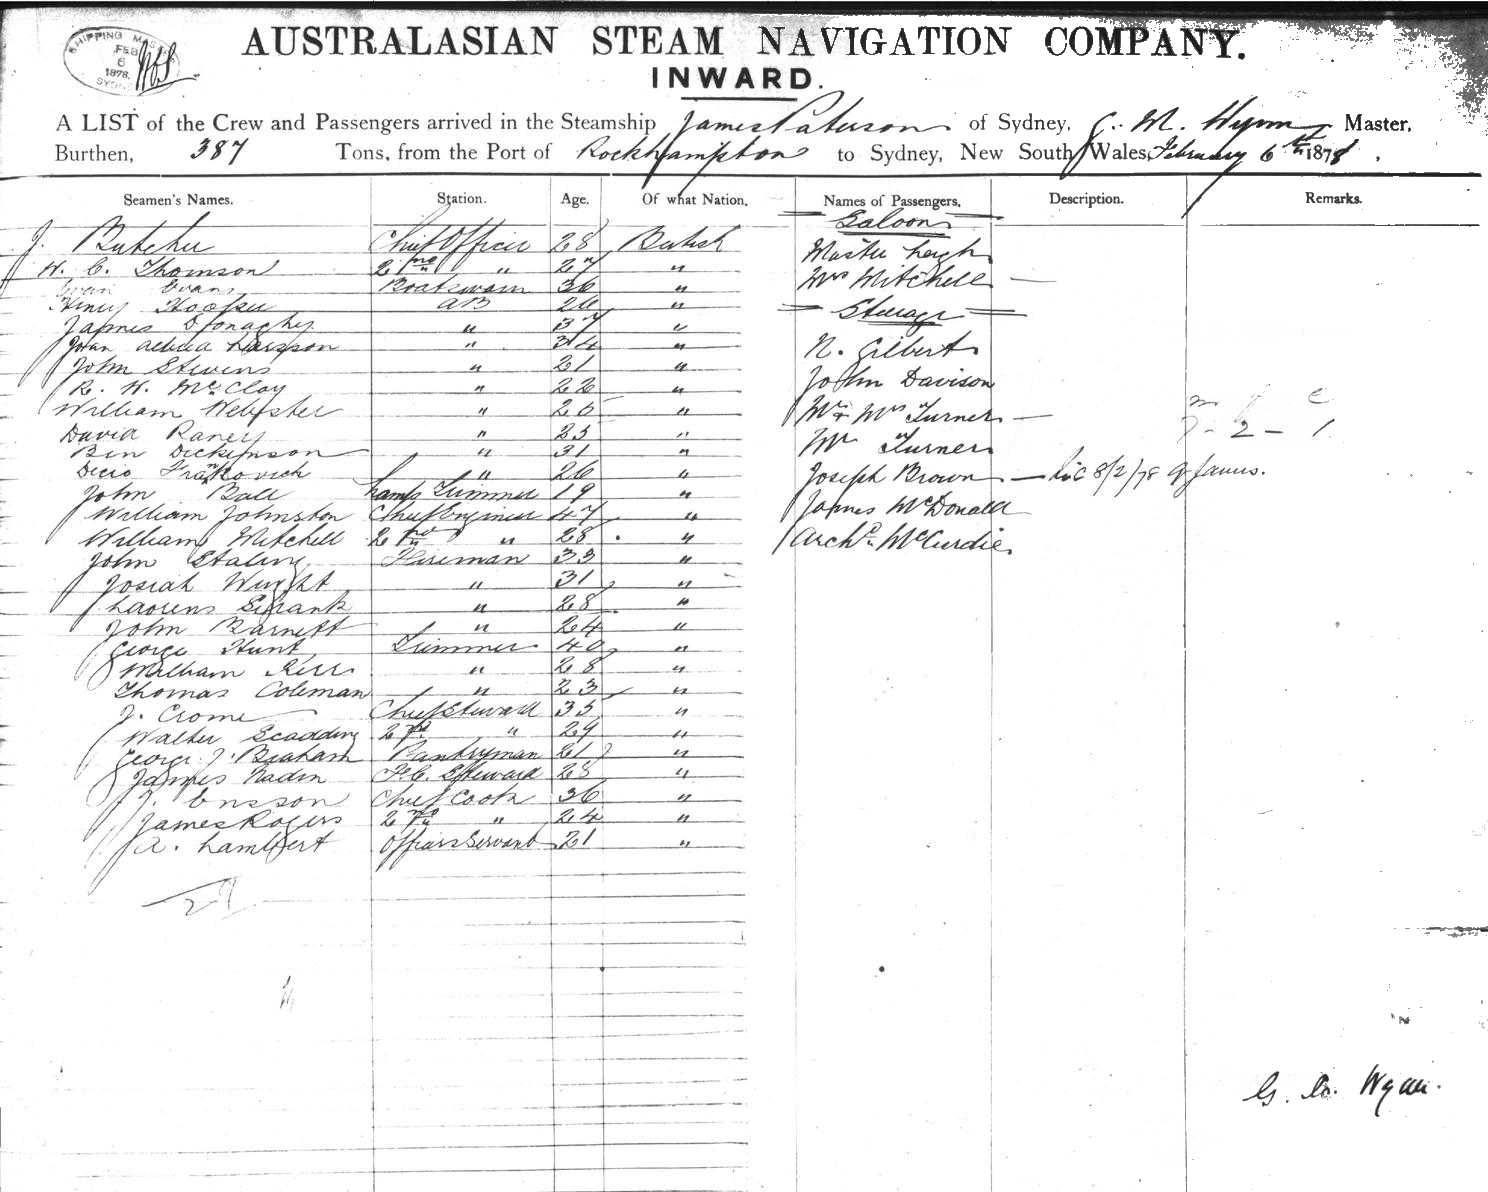 SHIPPING MAS
FEB
6
1878.
SYDN
AUSTRALASIAN STEAM NAVIGATION COMPANY.
INWARD.
A LIST of the Crew and Passengers arrived in the Steamship James Paterson of Sydney, G. M. Wynn Master,
Burthen, 387 Tons, from the Port of Rockhampton to Sydney, New South Wales, February 6th 1878.
Seamen's Names. Station. Age. Of what Nation.
J. Butcher Chief Officer 28 British
W. C. Thomson 2nd " 27 "
Evan Evans Boatswain 36 "
Henry Hooper AB 26 "
James Donaghy " 37 "
Larsson " 34 "
John Stevens " 21 "
R. H. McClay " 22 "
William Webster " 25 "
David Raney " 25 "
Ben Dickinson " 31 "
Decio Frankovich " 26 "
John Ball Lamp Trimmer 19 "
William Johnston Chief Engineer 47 "
William Mitchell 2nd " 28 "
John Staling Fireman 33 "
Josiah Wright " 31 "
" 28 "
John Barnett " 24 "
George Hunt Trimmer 40 "
William Kerr " 28 "
Thomas Coleman " 23 "
J. Crome Chief Steward 35 "
Walter Scadding 2nd " 29 "
George J. Braham Pantryman 21 "
James Nadin F.C. Steward 28 "
J. Ensson Chief Cook 36 "
James Rogers 2nd " 24 "
A. Lambert Officers Servant 21 "
29
Names of Passengers. Description. Remarks.
Saloon
Master Leigh
Mrs Mitchell —
Steerage
N. Gilbert
John Davison
Mr & Mrs Turner —
Mr Turner
Joseph Brown — 8/2/78
James McDonald
Archd McCurdie
m f c
7 - 2 - 1
G. M. Wynn.